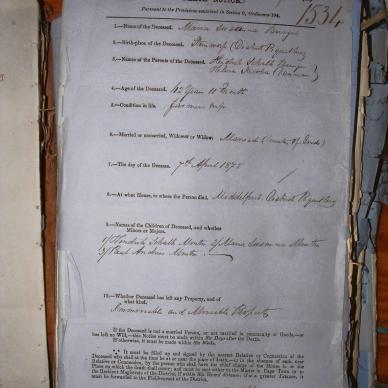 NOTICE.
1534
Pursuant to the Provisions contained in Section 9, Ordinance 104.
1.—Name of the Deceased. Maria Susanna
2.—Birth-place of the Deceased. (District Riquetberg)
3.—Names of the Parents of the Deceased. Hendrik Schalk
Helena Jacoba
4.—Age of the Deceased. 42 Years 10 Months
5.—Condition in life. farmers wife
6.—Married or unmarried, Widower or Widow. Married
7.—The day of the Decease. 7th April 1875
8.—At what House, or where the Person died. Middelpost, District
9.—Names of the Children of Deceased, and whether
Minors or Majors.
1/ Hendrik Schalk 2/ Maria Susanna
3/ Paul Andries
10.—Whether Deceased has left any Property, and of
what kind.
Immovable and Movable Property
If the Deceased is not a married Person, or not married in community of Goods,—or
has left no Will,—this Notice must be made within Six Days after the Death.
Otherwise, it must be made within Six Weeks.
*** It must be filled up and signed by the nearest Relative or Connexion of the
Deceased who shall at the time be at or near the place of death,—in the absence of such near
Relative or Connexion, by the person who shall have the chief charge of the House in or the
Place on which the death shall occur; and must be sent either to the Master in Cape Town or to
the Resident Magistrate of the District, if within Six Hours' distance. If at a greater distance, it
must be forwarded to the Field-cornet of the District.